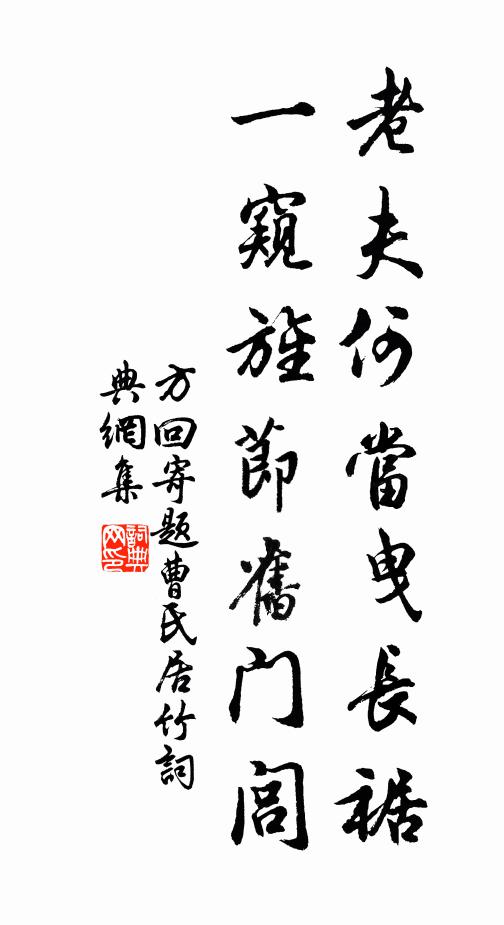 老夫何當曳長裾
一窺旌節舊門閭
方回寄題曹民居竹詞
典網集
詞典網印